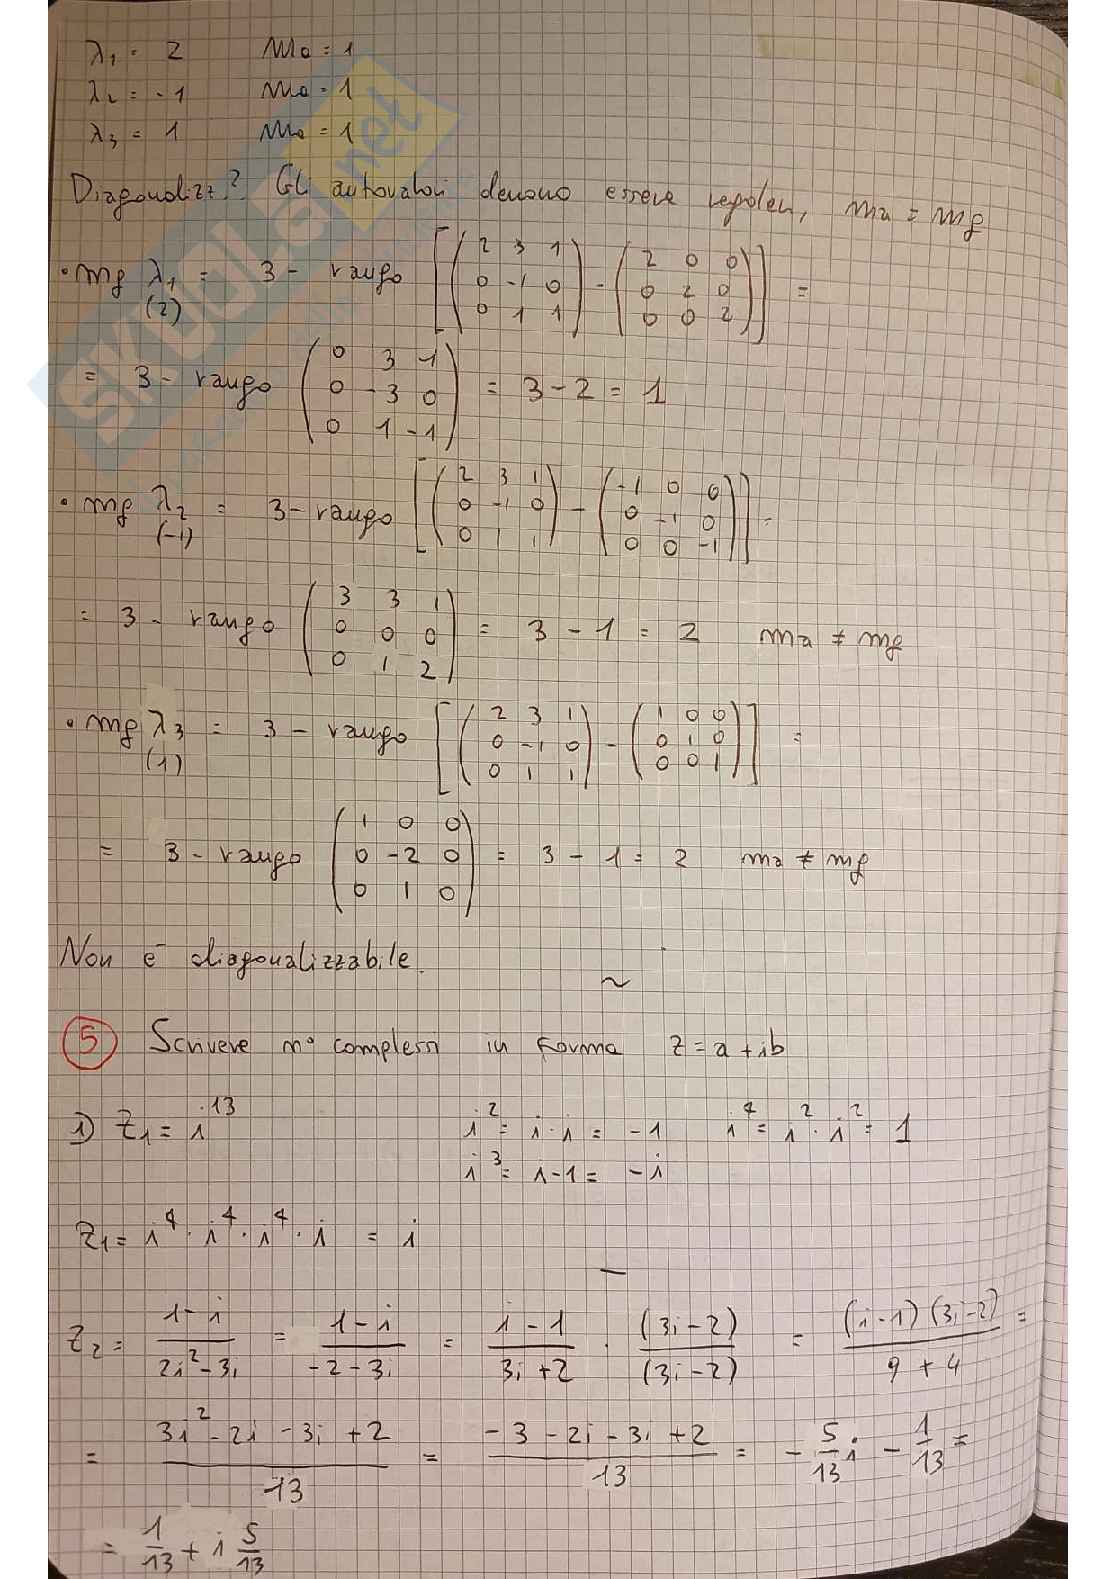 λ1 = 2 Ma = 1
λ2 = -1 Ma = 1
λ3 = 1 Ma = 1
Diagonalizz? Gli autovalori devono essere regolari, ma = mg
• mg λ1 = 3 - rango [ ( 2 3 1 ) - ( 2 0 0 ) ] =
(2) ( 0 -1 0 ) ( 0 2 0 )
( 0 1 1 ) ( 0 0 2 )
= 3 - rango ( 0 3 1 ) = 3 - 2 = 1
( 0 -3 0 )
( 0 1 -1 )
• mg λ2 = 3 - rango [ ( 2 3 1 ) - ( -1 0 0 ) ] =
(-1) ( 0 -1 0 ) ( 0 -1 0 )
( 0 1 1 ) ( 0 0 -1 )
= 3 - rango ( 3 3 1 ) = 3 - 1 = 2 ma ≠ mg
( 0 0 0 )
( 0 1 2 )
• mg λ3 = 3 - rango [ ( 2 3 1 ) - ( 1 0 0 ) ] =
(1) ( 0 -1 0 ) ( 0 1 0 )
( 0 1 1 ) ( 0 0 1 )
= 3 - rango ( 1 0 0 ) = 3 - 1 = 2 ma ≠ mg
( 0 -2 0 )
( 0 1 0 )
Non è diagonalizzabile.
~
5 Scrivere n° complessi in forma z = a + ib
1) Z1 = i^13 i^2 = i · i = -1 i^4 = i^2 · i^2 = 1
i^3 = i · -1 = -i
Z1 = i^4 · i^4 · i^4 · i = i
Z2 = (1 - i)/(2i^2 - 3i) = (1 - i)/(-2 - 3i) = (i - 1)/(3i + 2) · (3i - 2)/(3i - 2) = (i - 1)(3i - 2)/(9 + 4) =
= (3i^2 - 2i - 3i + 2)/-13 = (-3 - 2i - 3i + 2)/13 = -5/13 i - 1/13 =
= 1/13 + i 5/13
SKUOLA.net